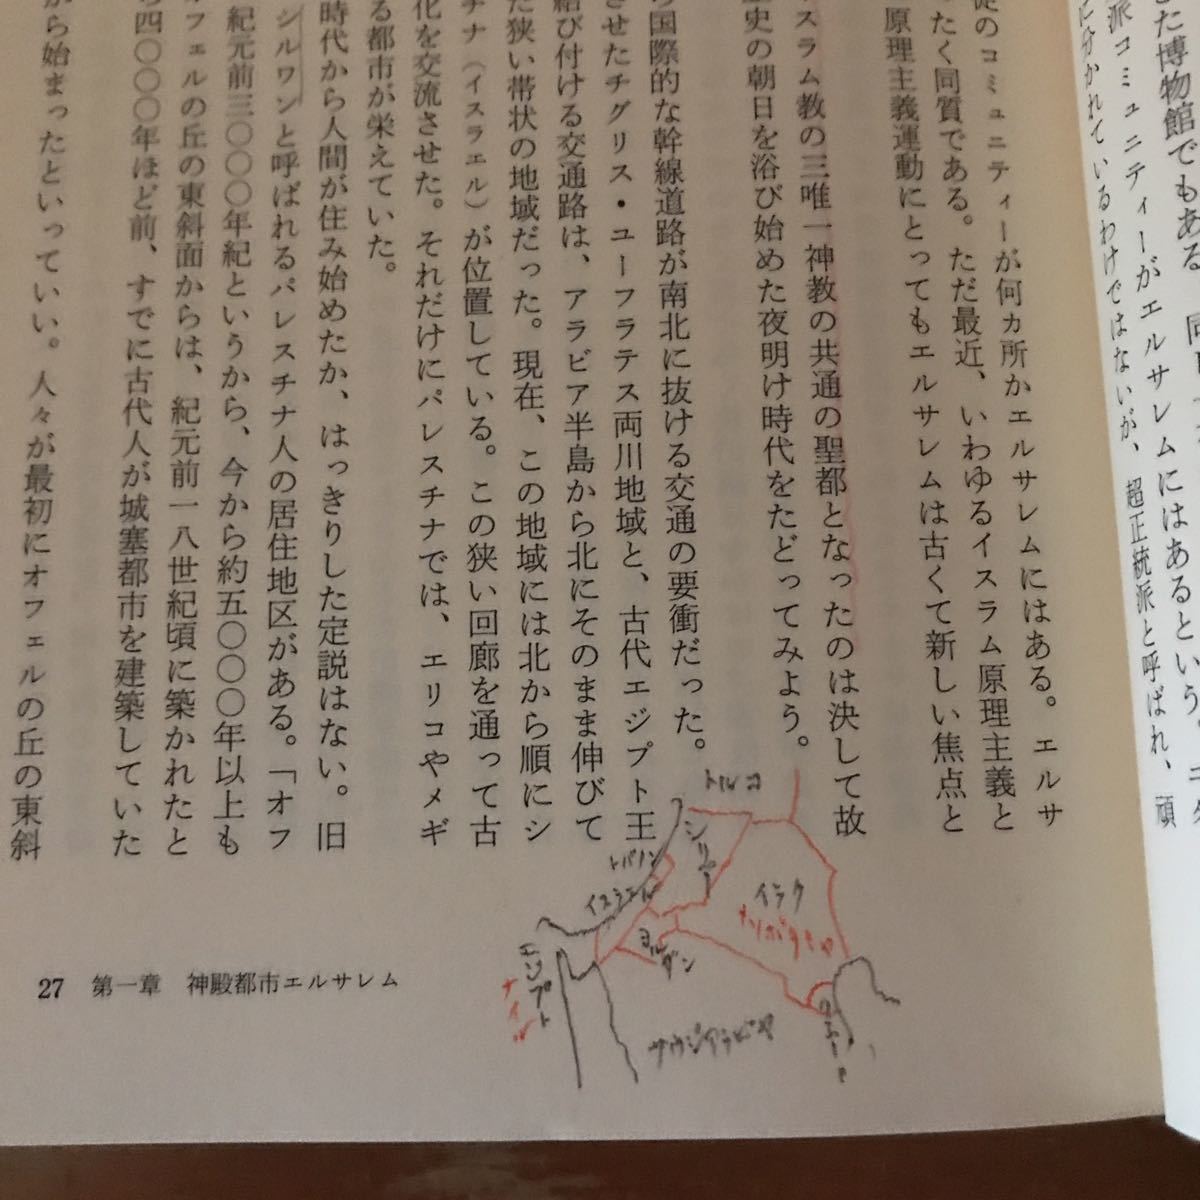 した博物館でもある
派コミュニティーがエルサレムにはあるという
に分かれているわけではないが、超正統派と呼ばれ、頑
徒のコミュニティーが何カ所かエルサレムにはある。エルサ
ったく同質である。ただ最近、いわゆるイスラム原理主義と
原理主義運動にとってもエルサレムは古くて新しい焦点と
スラム教の三唯一神教の共通の聖都となったのは決して故
史の朝日を浴び始めた夜明け時代をたどってみよう。
国際的な幹線道路が南北に抜ける交通の要衝だった。
させたチグリス・ユーフラテス両川地域と、古代エジプト王
結び付ける交通路は、アラビア半島から北にそのまま伸びて
た狭い帯状の地域だった。現在、この地域には北から順にシ
チナ（イスラエル）が位置している。この狭い回廊を通って古
化を交流させた。それだけにパレスチナでは、エリコやメギ
る都市が栄えていた。
時代から人間が住み始めたか、はっきりした定説はない。旧
シルワンと呼ばれるパレスチナ人の居住地区がある。「オフ
紀元前三〇〇〇年紀というから、今から約五〇〇〇年以上も
フェルの丘の東斜面からは、紀元前一八世紀頃に築かれたと
四〇〇〇年ほど前、すでに古代人が城塞都市を建築していた
から始まったといっていい。人々が最初にオフェルの丘の東斜
27 第一章 神殿都市エルサレム
トルコ
シリアー
レバノン
イスラエル
イラク
メソポタミヤ
ヨルダン
エジプト
ナイル
サウジアラビヤ